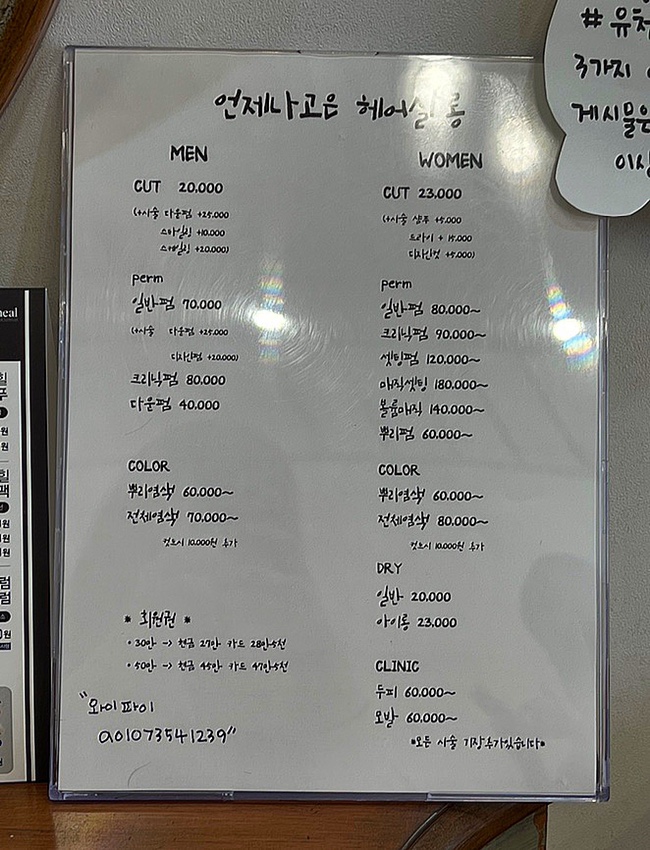 언제나고은 헤어살롱
MEN
CUT 20,000
(+시술 다운펌 +25,000
스타일링 +10,000
+20,000)
perm
일반펌 70,000
(+시술 다운펌 +25,000
디자인펌 +20,000)
크리닉펌 80,000
다운펌 40,000
COLOR
뿌리염색 60,000~
전체염색 70,000~
컷트시 10,000원 추가
* 회원권 *
• 30만 -> 현금 27만 카드 28만5천
• 50만 -> 현금 45만 카드 47만5천
"와이파이
a01073541239"
WOMEN
CUT 23,000
(+시술 샴푸 +5,000
드라이 + 15,000
디자인컷 +5,000)
perm
일반펌 80,000~
크리닉펌 90,000~
셋팅펌 120,000~
매직셋팅 180,000~
볼륨매직 140,000~
뿌리펌 60,000~
COLOR
뿌리염색 60,000~
전체염색 80,000~
컷트시 10,000원 추가
DRY
일반 20,000
아이롱 23,000
CLINIC
두피 60,000~
모발 60,000~
*모든 시술 기장추가있습니다*
# 유
3가지
게시물은
이상